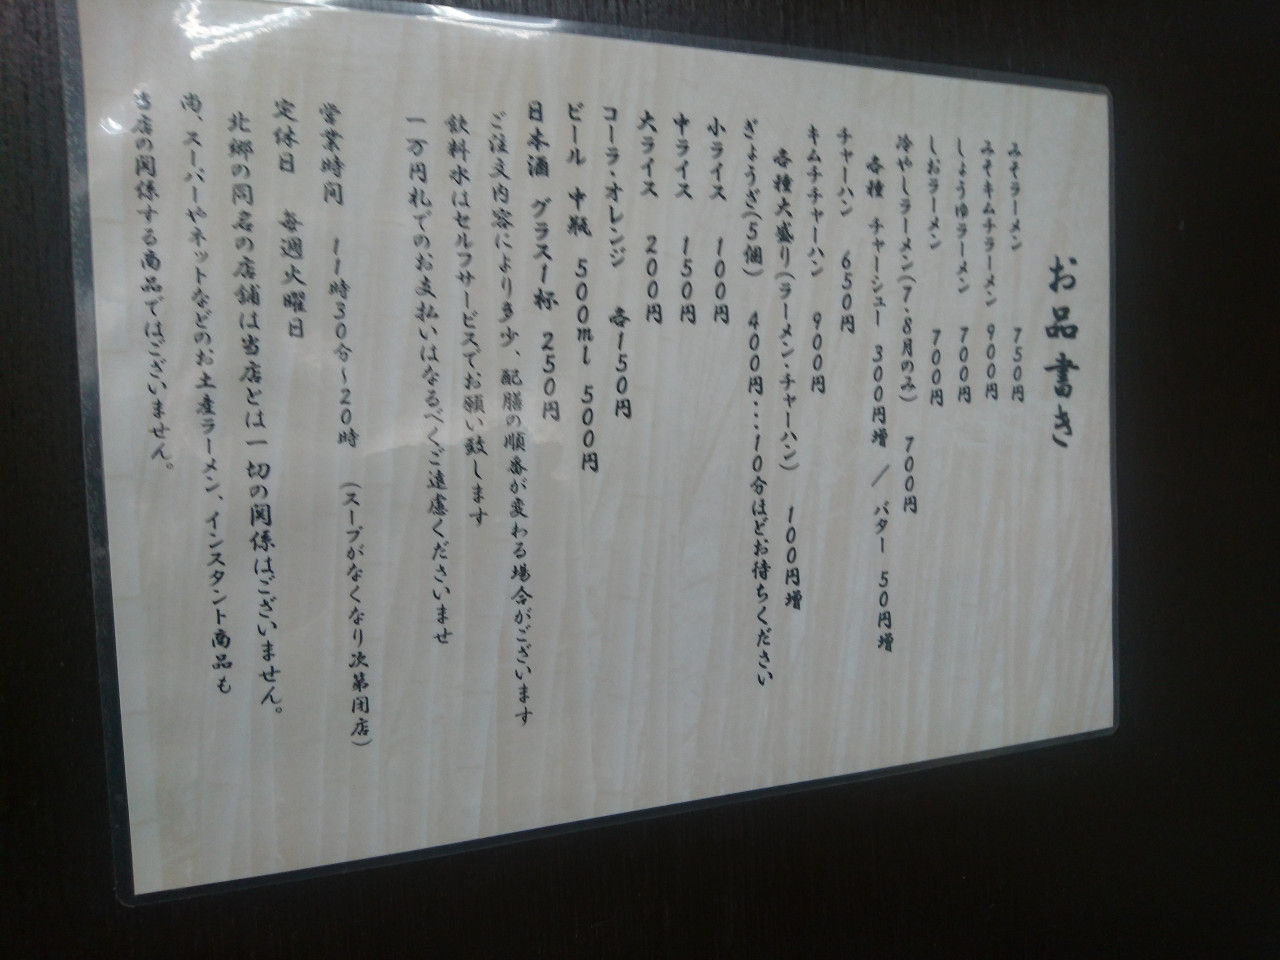 お品書き
みそラーメン 750円
みそキムチラーメン 900円
しょうゆラーメン 700円
しおラーメン 700円
冷やしラーメン(7・8月のみ) 700円
各種 チャーシュー 300円増 / バター 50円増
チャーハン 650円
キムチチャーハン 900円
各種大盛り(ラーメン・チャーハン) 100円増
ぎょうざ(5個) 400円・・・10分ほどお待ちください
小ライス 100円
中ライス 150円
大ライス 200円
コーラ・オレンジ 各150円
ビール 中瓶 500ml 500円
日本酒 グラス1杯 250円
ご注文内容により多少、配膳の順番が変わる場合がございます
飲料水はセルフサービスでお願い致します
一万円札でのお支払いはなるべくご遠慮くださいませ
営業時間 11時30分~20時 (スープがなくなり次第閉店)
定休日 毎週火曜日
北郷の同名の店舗は当店とは一切の関係はございません。
尚、スーパーやネットなどのお土産ラーメン、インスタント商品も
当店の関係する商品ではございません。